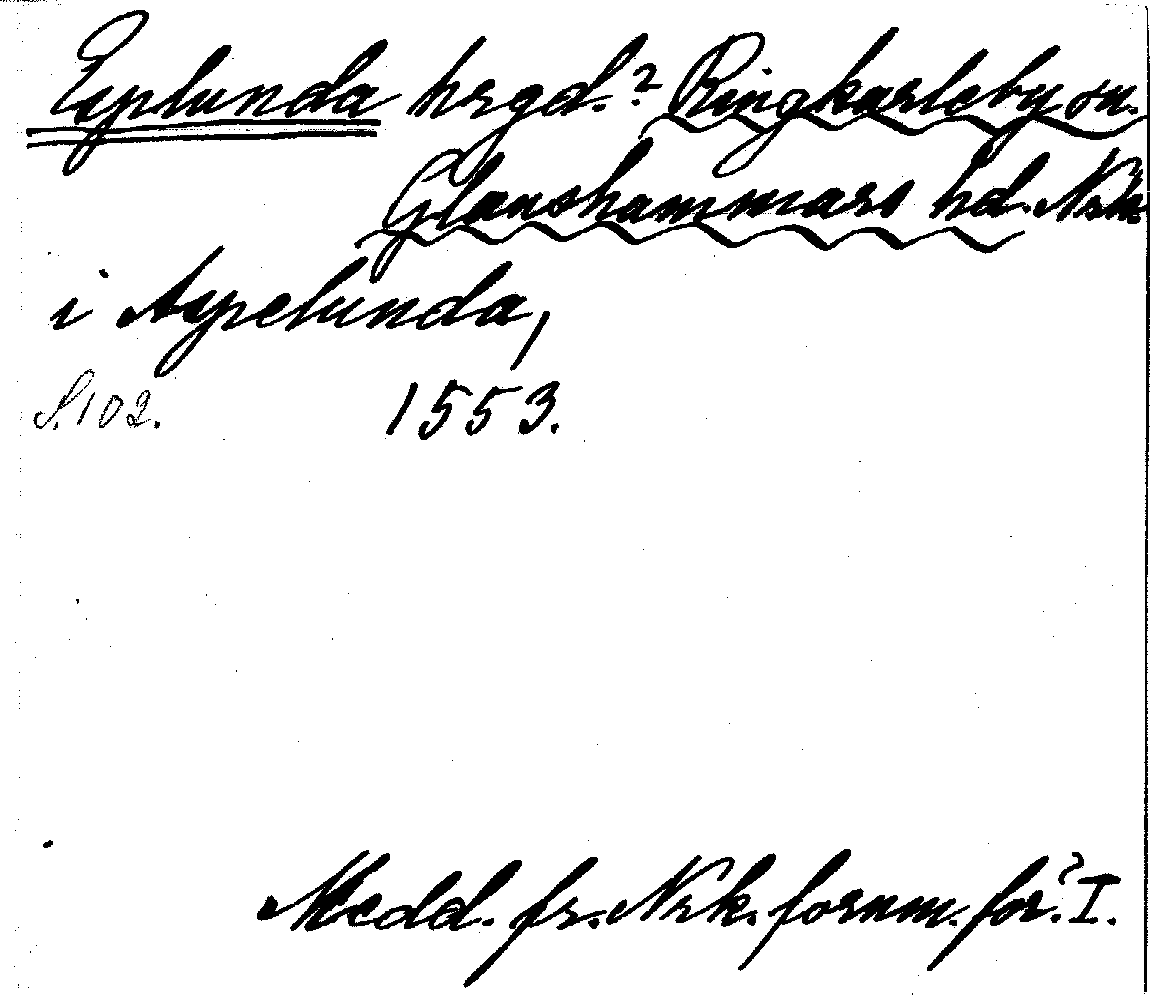 Esplunda hrgd.? Ringkarleby sn.
Glanshammars hd. Närke
i Aspelunda,
S. 102. 1553.
Medd. fr. Nrk. fornm. för. I.